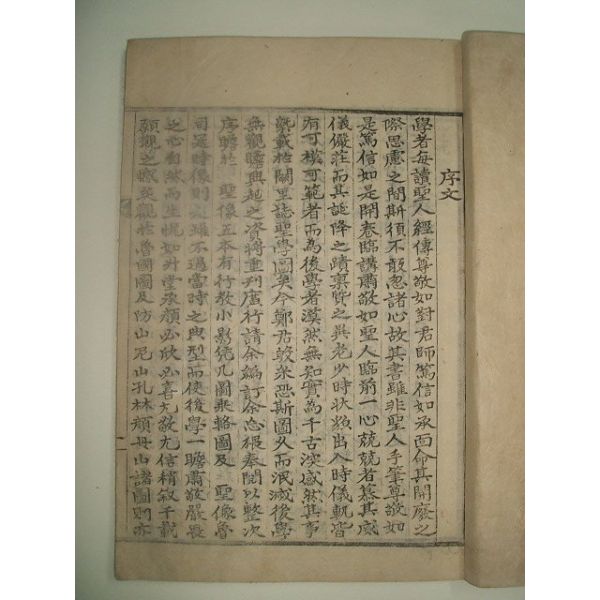 序文
學者每讀聖人經傳尊敬如對君師篤信如承面命其開廢之
際思慮之間斯須不敢忽諸心故其書雖非聖人手筆尊敬如
是篤信如是開卷臨講肅敬如聖人臨前一心兢兢者慕其威
儀儼莊而其誕降之蹟稟質之異老少時状類出入時儀軌皆
有可模可範者而為後學者漠然無知實為千古深感然其事
蹟載於闕里誌聖學圖矣今鄭君 恐斯圖久而泯滅後學
無觀瞻興起之資將重刊廣行請余編訂余忘 奉閱以整次
序瞻於 聖像五本有行教小影凭几圖乘輅圖及 聖像魯
司寇時像則 雖不過當時之典型而使後學一瞻肅敬嚴畏
之心自然而生怳如升堂承顔必欣必喜尤敬尤信稍叙千載
願觀之 至觀於魯國圖及防山尼山孔林顔母山諸圖則亦